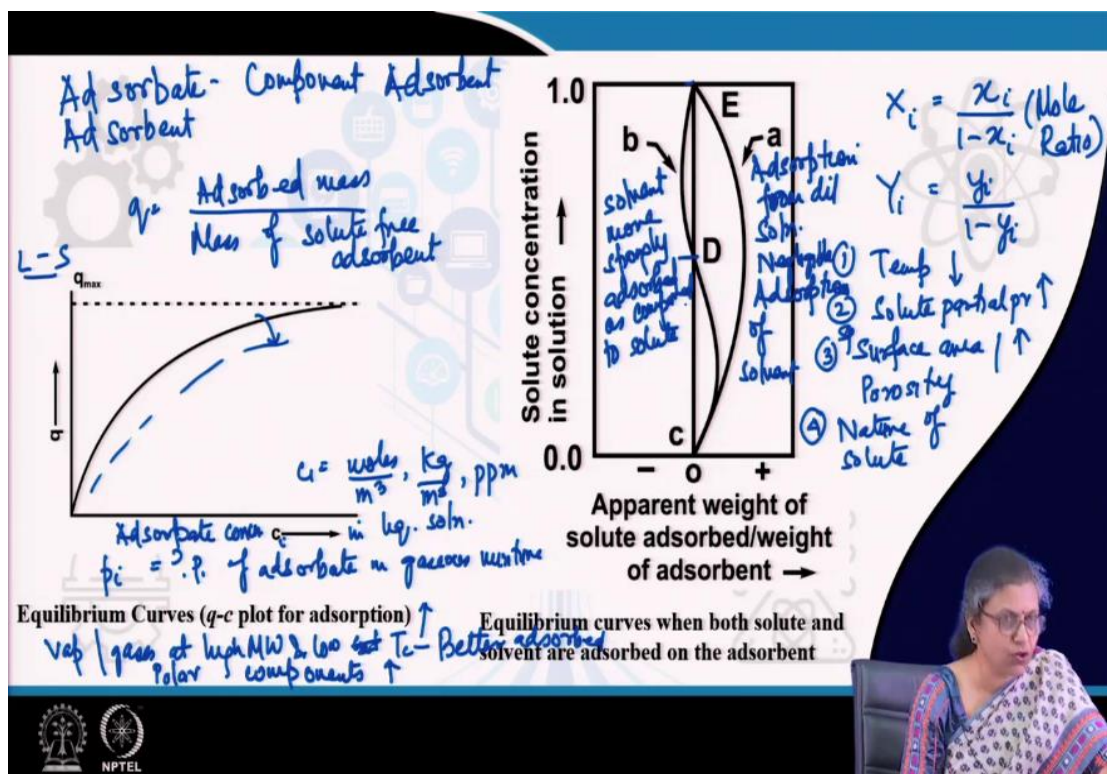 Adsorbate - Component Adsorbent
Adsorbent
q = Adsorbed mass
Mass of solute free
adsorbent
L - S
qmax
q
Adsorbate concn ci in liq. soln.
ci = moles/m³, Kg/m³, ppm
pi = P.P. of adsorbate in gaseous mixture
Equilibrium Curves (q-c plot for adsorption) ↑
Vap / gases at high MW & low Tc - Better adsorbed
Polar components ↑
Solute concentration
in solution
1.0
0.0
E
D
C
b
a
solvent
more
strongly
adsorbed
as compared
to solute
Adsorption
from dil
soln.
Negligible
Adsorption
of
solvent
− o +
Apparent weight of
solute adsorbed/weight
of adsorbent
Equilibrium curves when both solute and
solvent are adsorbed on the adsorbent
Xi = xi / 1-xi (Mole
Ratio)
Yi = yi / 1-yi
① Temp ↓
② Solute partial pr ↑
③ Surface area / ↑
Porosity
④ Nature of
solute
NPTEL